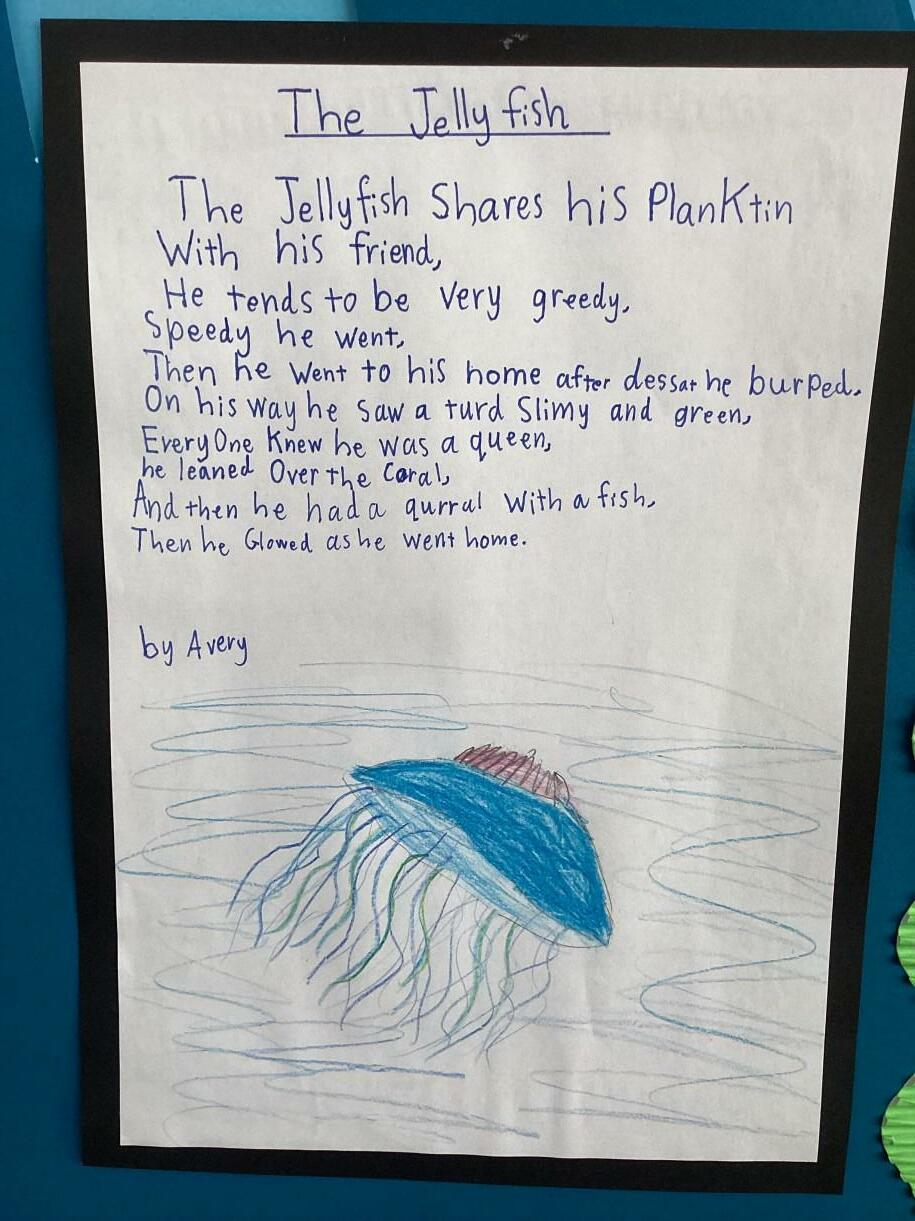 The Jelly fish
The Jellyfish Shares his PlanKtin
With his friend,
He tends to be very greedy,
Speedy he went,
Then he went to his home after dessat he burped.
On his way he saw a turd Slimy and green,
EveryOne Knew he was a queen,
he leaned Over the Coral,
And then he had a qurral With a fish,
Then he Glowed as he went home.
by Avery